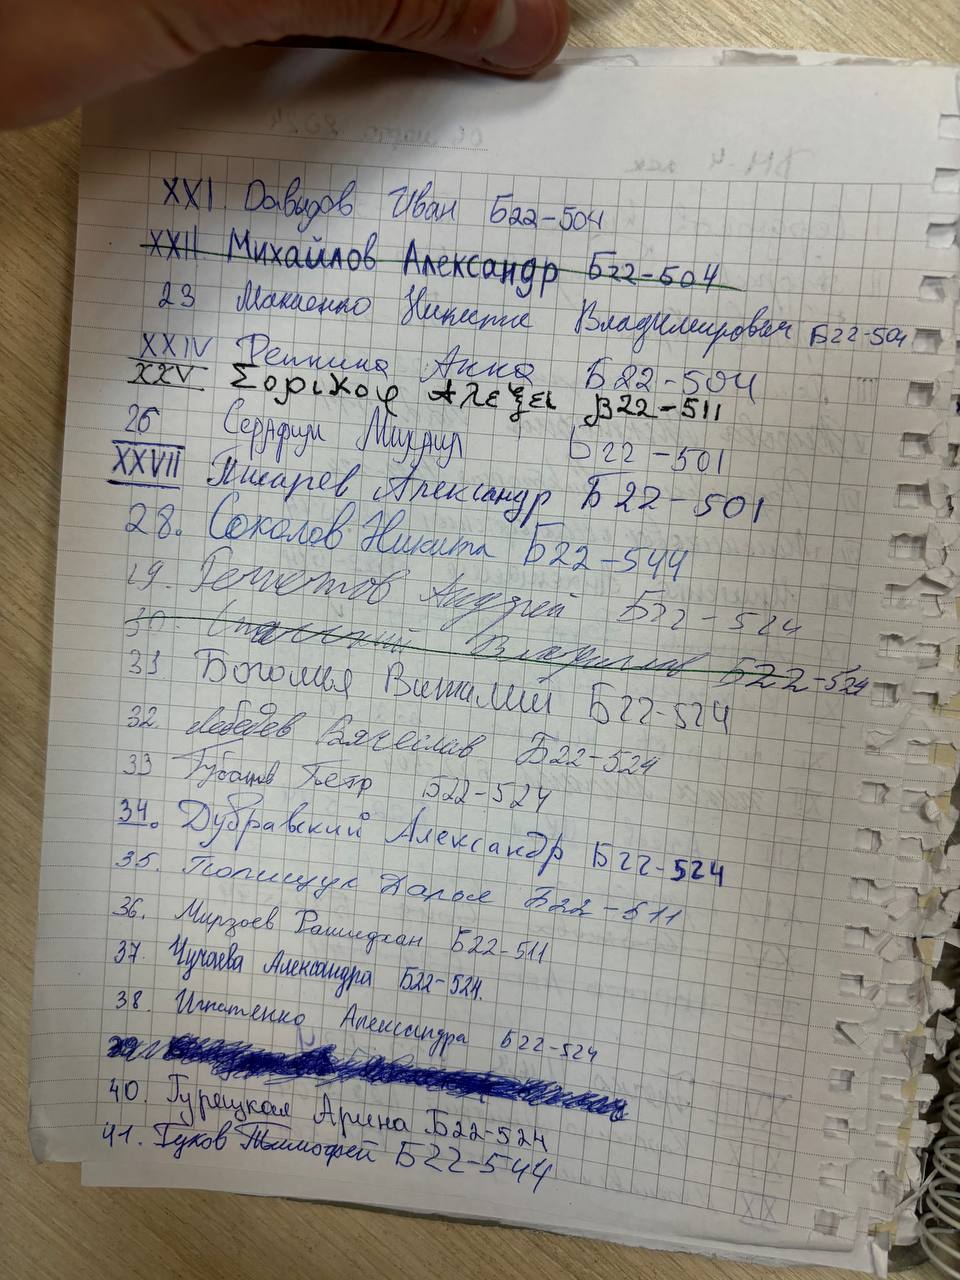 XXI. Давыдов Иван Б22-504
XXII Михайлов Александр Б22-504
23 Макаенко Никита Владимирович Б22-504
XXIV Репкина Анна Б22-504
XXV Σορικοφ Αλεξει β22-511
26 Серафим Михаил Б22-501
XXVII Писарев Александр Б22-501
28. Соколов Никита Б22-544
29. Решетов Андрей Б22-524
30. Владислав Б22-524
31 Боголия Виталий Б22-524
32 Лебедев Вячеслав Б22-524
33 Губанов Петр Б22-524
34. Дубравский Александр Б22-524
35. Полищук Дарья Б22-511
36. Мирзоев Рашидхан Б22-511
37. Чучаева Александра Б22-524.
38. Игнатенко Александра Б22-524
40. Гурецкая Арина Б22-524
41. Гуков Тимофей Б22-544